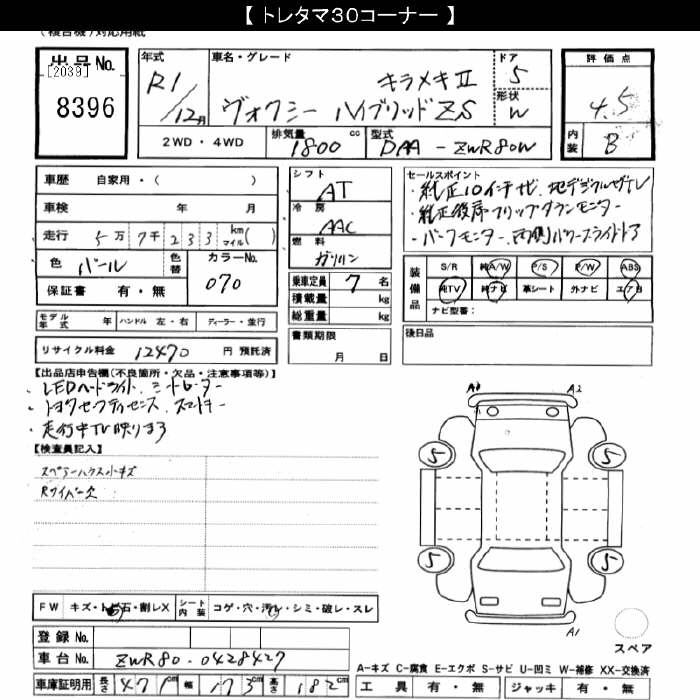 【 トレタマ30コーナー 】
(複合機)対応用紙
出品No.
[2039]
8396
年式
R1/12月
車名・グレード
キラメキⅡ
ヴォクシー ハイブリッドZS
ドア
5
形状
W
評価点
4.5
内装
B
2WD・4WD
排気量
1800 cc
型式
DAA-ZWR80W
車歴 自家用・( )
車検 年 月
走行 5万7千233 km マイル( )
色 パール
色替
カラーNo.
070
保証書 有・無
シフト
AT
冷房
AAC
燃料
ガソリン
乗車定員 7名
積載量 kg
総重量 kg
書類期限
月 日
セールスポイント
・純正10インチナビ、地デジフルセグTV
・純正後席フリップダウンモニター
・パーフモニター、両側パワースライドドア
装備品
S/R 純A/W P/S P/W ABS
純TV 純ナビ 革シート 外ナビ エアB
ナビ型番:
後日品
モデル年式 年 ハンドル 左・右 ディーラー・並行
リサイクル料金 12470 円 預託済
【出品店申告欄(不良箇所・欠品・注意事項等)】
・LEDヘッドライト、シートヒーター
・トヨタセーフティセンス、スマートキー
・走行中TV映ります
【検査員記入】
スペアーハウス小キズ
Rワイパー欠
A0
A2
5
5
5
5
A1
スペア
FW キズ・トビ石・割レX
シート内装 コゲ・穴・汚レ・シミ・破レ・スレ
登録No.
車台No. ZWR80-0428427
車庫証明用 長さ 471cm 幅 173cm 高さ 182cm
A-キズ C-腐食 E-エクボ S-サビ U-凹ミ W-補修 XX-交換済
工具 有・無 ジャッキ 有・無